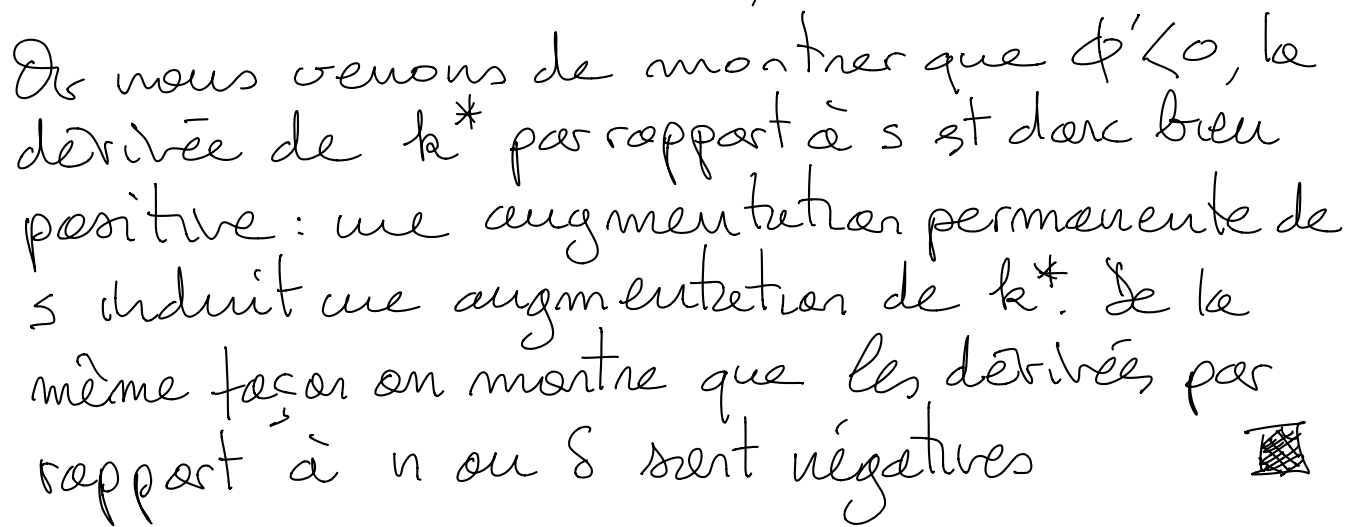 Or nous venons de montrer que ϕ'<0, la
dérivée de k* par rapport à s est donc bien
positive : une augmentation permanente de
s induit une augmentation de k*. De la
même façon on montre que les dérivées par
rapport à n ou δ sont négatives